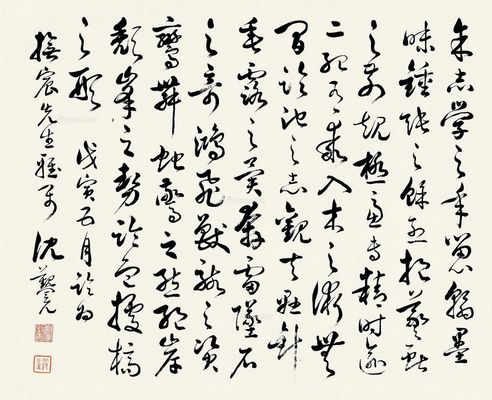 余志學之年留心翰墨
味鍾張之餘烈挹羲獻
之前規極慮專精時逾
二紀有乖入木之術無
間臨池之志觀夫懸針
垂露之異奔雷墜石
之奇鴻飛獸駭之資
鸞舞蛇驚之態絕岸
頹峰之勢臨危據槁
之形 戊寅五月臨為
撫宸先生雅屬 沈